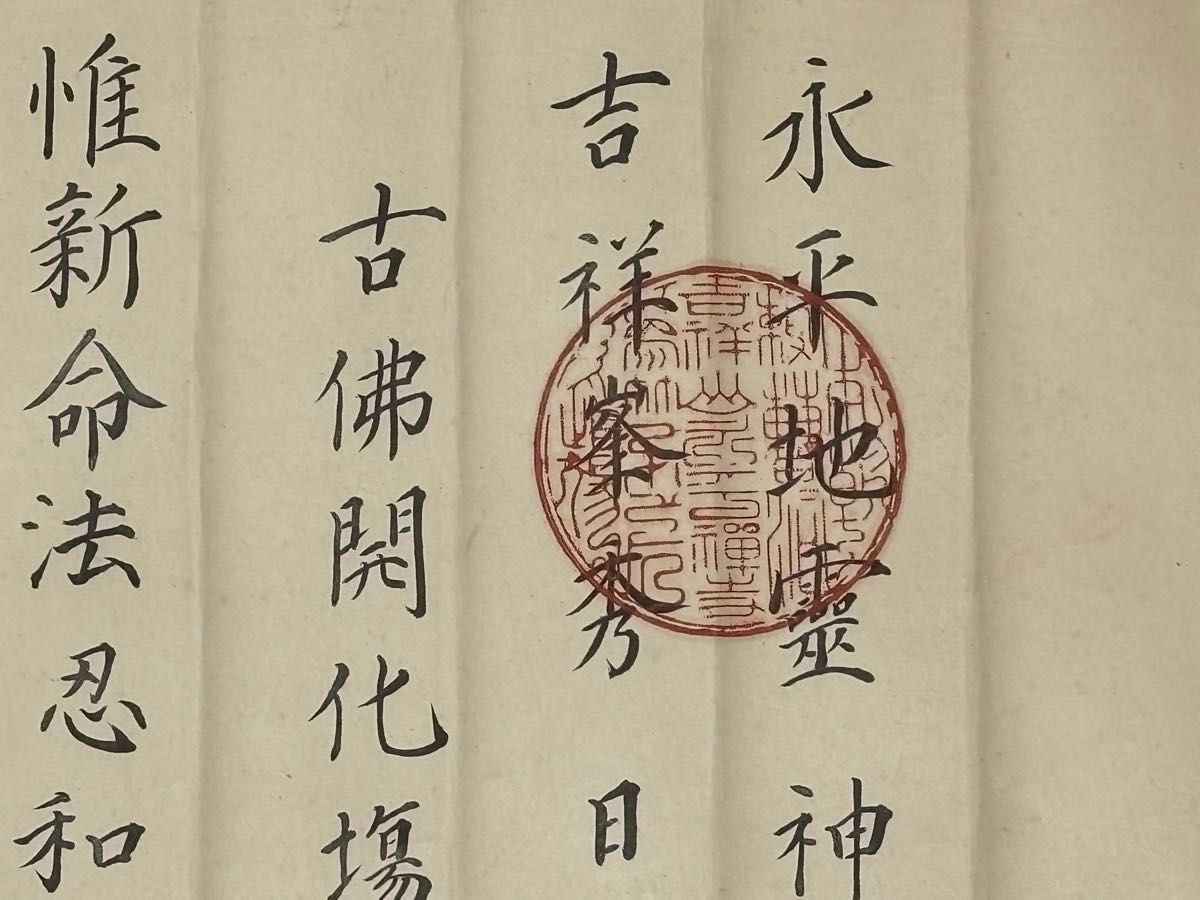 永平地靈神
吉祥峯秀日
古佛開化場
惟新命法忍和
吉祥山永平禪寺